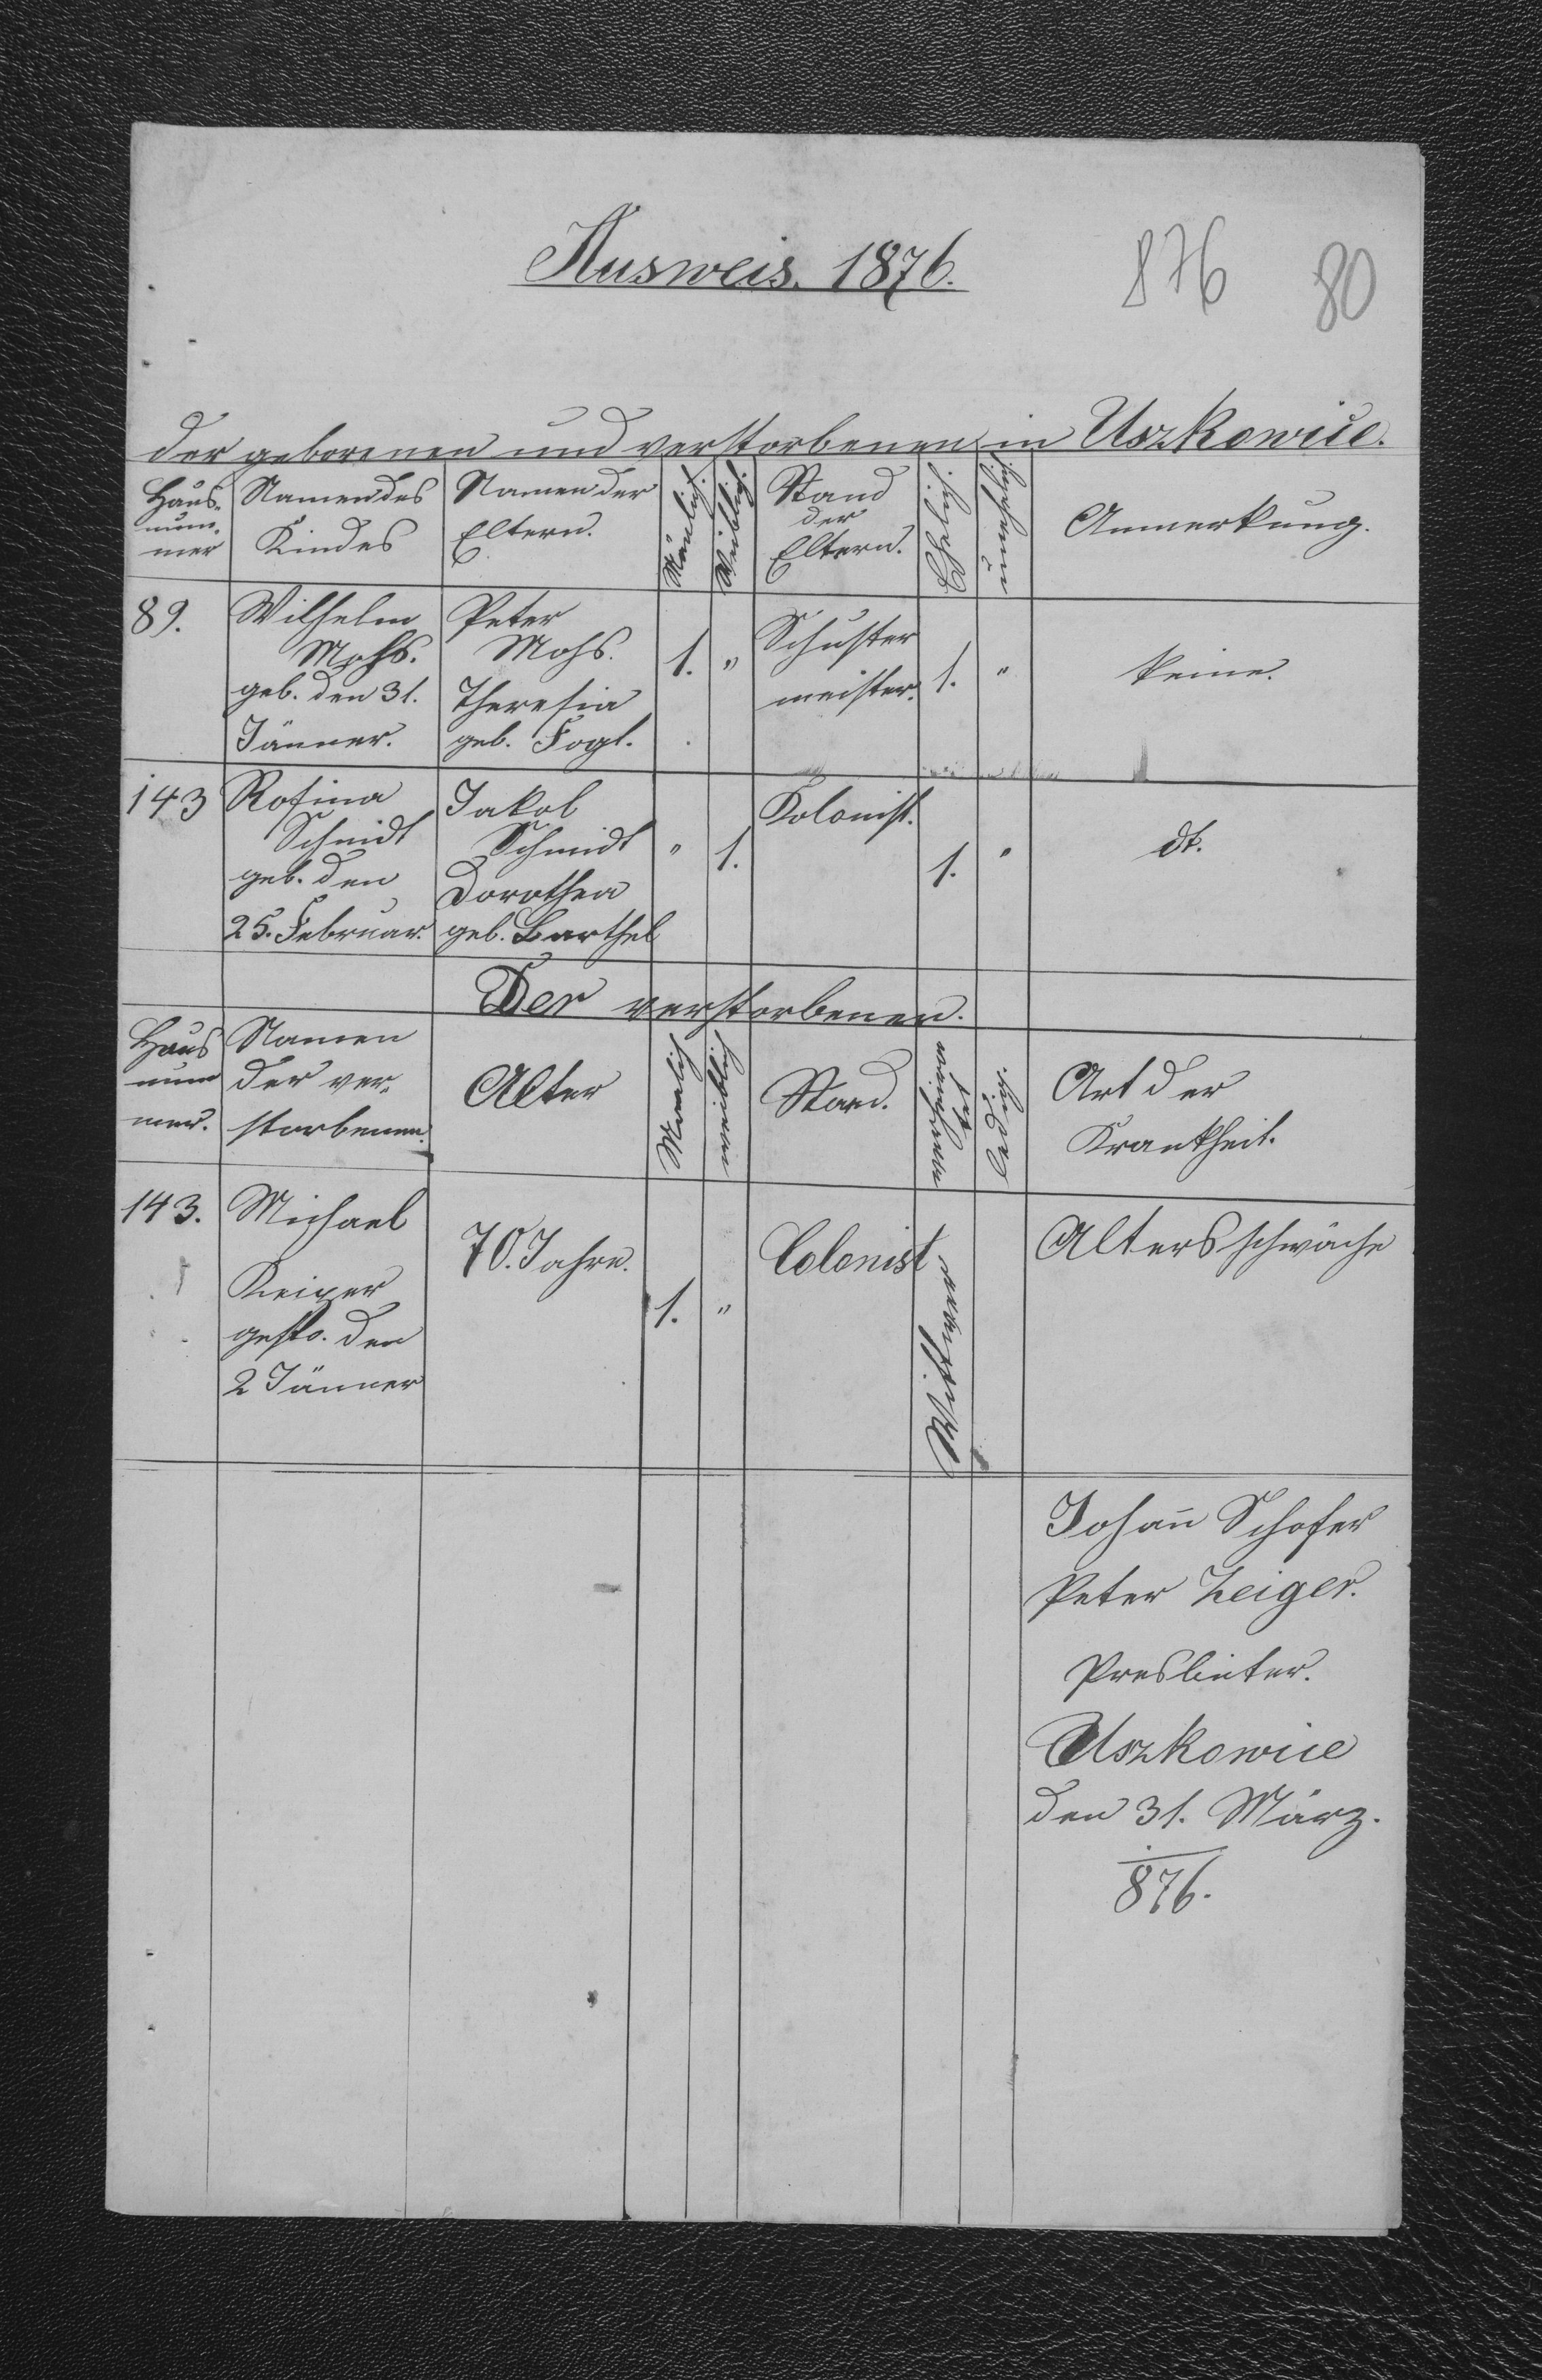 Ausweis. 1876.
876
80
der geborenen und verstorbenen in Uszkowice.
Haus-
num-
mer
Namen des
Kindes
Namen der
Eltern.
Mänlich.
Weiblich.
Stand
der
Eltern.
Ehelich.
unehelich.
Anmerkung.
89.
Wilhelm
Mohs.
geb. den 31.
Jänner.
Peter
Mohs.
Theresia
geb. Fogl.
1.
"
Schuster
meister.
1.
"
keine.
143
Rosina
Schmidt
geb. den
25. Februar.
Jakob
Schmidt
Dorothea
geb. Barthel
"
1.
Kolonist.
1.
"
dt.
Der verstorbenen.
Haus
num
mer.
Namen
der ver-
storbenen.
Alter
Mänlich
weiblich
Stand.
verheira
tet
ledig.
Art der
Krankheit.
143.
Michael
Keiper
gesto. den
2 Jänner
70. Jahre.
1.
"
Colonist
Wittwer
Altersschwäche
Johan̄ Schofer
Peter Zeiger.
Presbiter.
Uszkowice
den 31. März.
876.